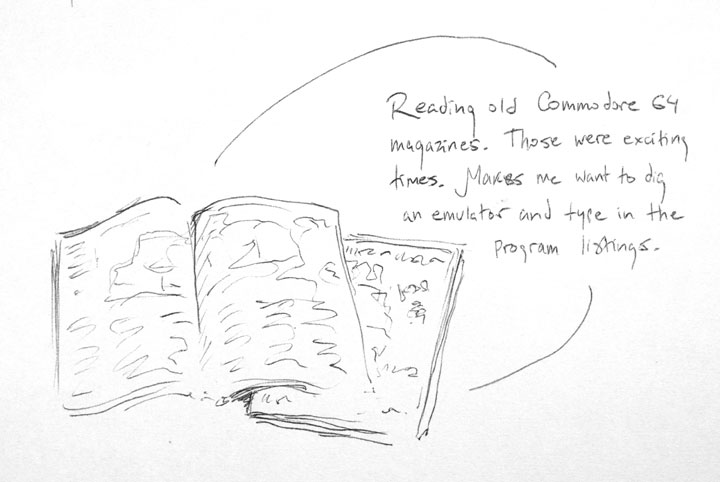 Reading old Commodore 64
magazines. Those were exciting
times. Makes me want to dig
an emulator and type in the
program listings.